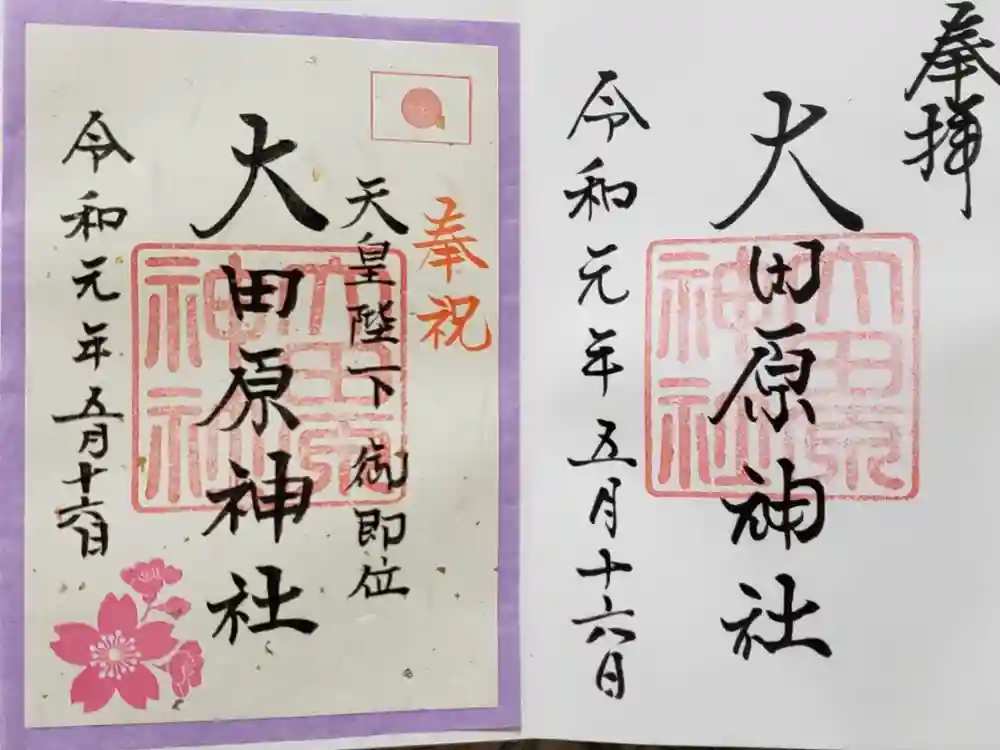 奉拝
大田原神社
令和元年五月十六日
奉祝
天皇陛下御即位
大田原神社
令和元年五月十六日
大田原
神社
大田原
神社